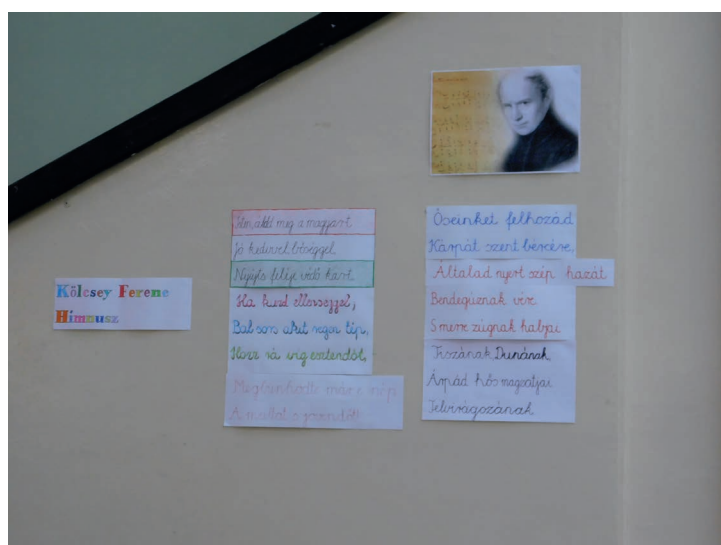 Kölcsey Ferenc
Himnusz
Isten, áldd meg a magyart
Jó kedvvel, bőséggel,
Nyújts feléje védő kart,
Ha küzd ellenséggel,
Bal sors akit régen tép,
Hozz rá víg esztendőt,
Megbűnhődte már e nép
A multat s jövendőt!
Őseinket felhozád
Kárpát szent bércére,
Általad nyert szép hazát
Bendegúznak vére.
S merre zúgnak habjai
Tiszának Dunának
Árpád hős magzatjai
Felvirágozának